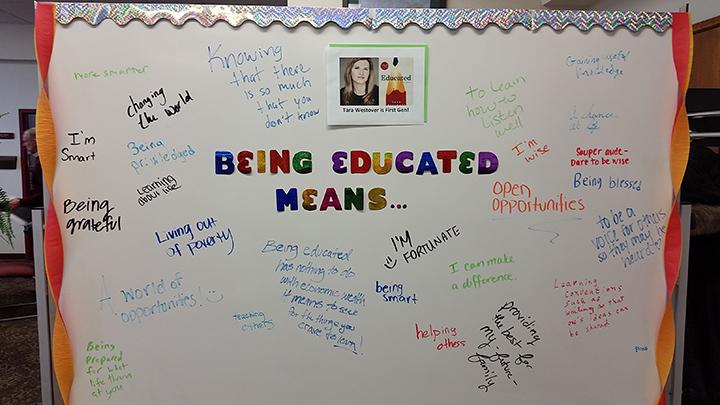 more smarter
changing
the world
Knowing
that there
is so much
that you
don't know
Educated
Tara Westover is First Gen!
to learn
how to
listen
well
Gaining useful
knowledge
A chance
at life
I'm
Smart
Being
priviledged
Learning
about life!
Being
grateful
BEING EDUCATED
MEANS...
I'm
wise
Sauper aude-
Dare to be wise
Being blessed
Open
opportunities
Living out
of poverty
to be a
voice for others
so they may be
heard
I'M
FORTUNATE
Being educated
has nothing to do
with economic wealth
it means to seek
for the things you
crave to learn!
I can make
a difference.
being
smart
A world of
opportunities!
teaching
others
helping
others
providing
the best for
my future
family
Learning
conventions
such as
writing so that
one's ideas can
be shared
Being
prepared
for what
life throws
at you